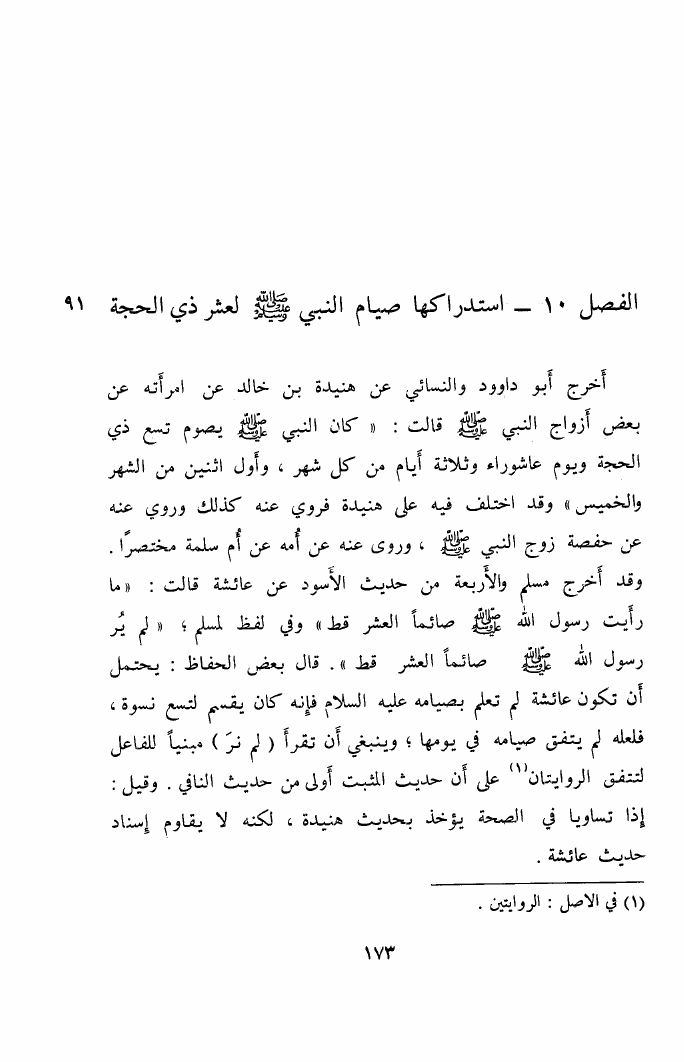 الفصل ١٠ – استدراكها صيام النبي ﷺ لعشر ذي الحجة ٩١
أخرج أبو داوود والنسائي عن هنيدة بن خالد عن امرأته عن
بعض أزواج النبي ﷺ قالت : « كان النبي ﷺ يصوم تسع ذي
الحجة ويوم عاشوراء وثلاثة أيام من كل شهر ، وأول اثنين من الشهر
والخميس » وقد اختلف فيه على هنيدة فروي عنه كذلك وروي عنه
عن حفصة زوج النبي ﷺ ، وروى عنه عن أُمه عن أُم سلمة مختصرًا .
وقد أخرج مسلم والأربعة من حديث الأسود عن عائشة قالت : « ما
رأيت رسول الله ﷺ صائماً العشر قط » وفي لفظ لمسلم ؛ « لم يُر
رسول الله ﷺ صائماً العشر قط ». قال بعض الحفاظ : يحتمل
أن تكون عائشة لم تعلم بصيامه عليه السلام فإنه كان يقسم لتسع نسوة ،
فلعله لم يتفق صيامه في يومها ؛ وينبغي أن تقرأ ( لم نرَ ) مبنياً للفاعل
لتتفق الروايتان(١) على أن حديث المثبت أولى من حديث النافي . وقيل :
إذا تساويا في الصحة يؤخذ بحديث هنيدة ، لكنه لا يقاوم إسناد
حديث عائشة .
(١) في الاصل : الروايتين .
١٧٣